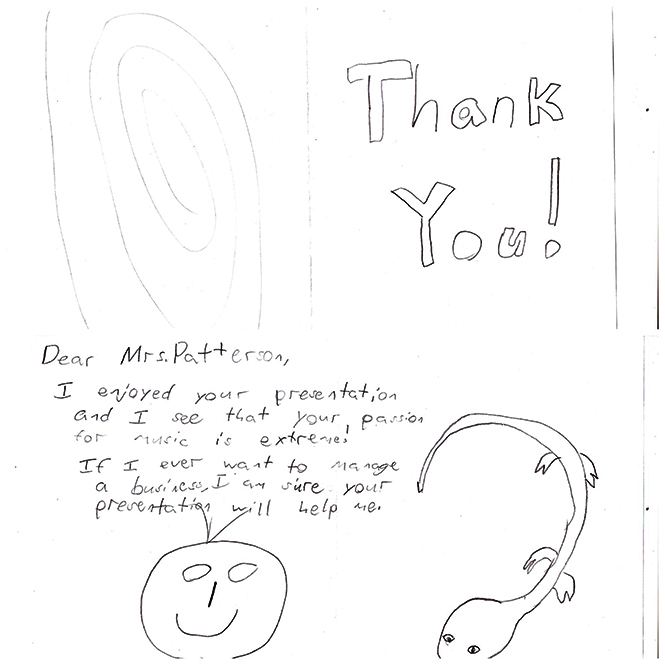 Thank
You!
Dear Mrs. Patterson,
I enjoyed your presentation
and I see that your passion
for music is extreme.
If I ever want to manage
a business, I am sure your
presentation will help me.